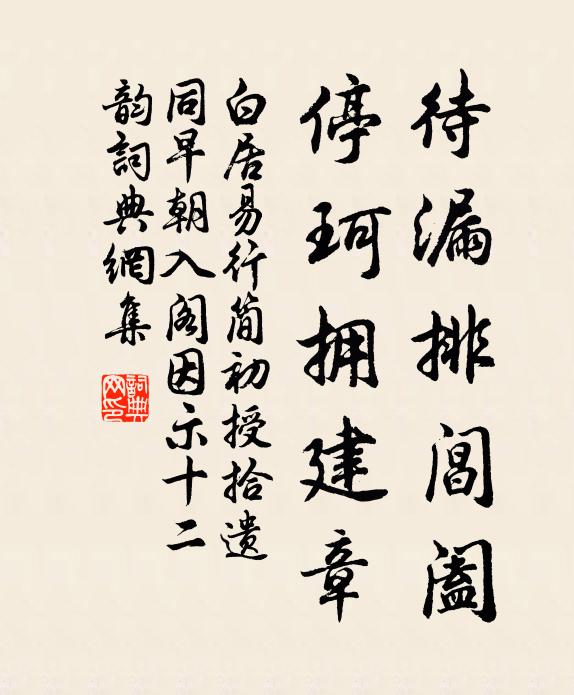 待漏排閶闔
停珂拥建章
白居易行简初授拾遗
同早朝入阁因示十二
韵詞典網集
詞典网印